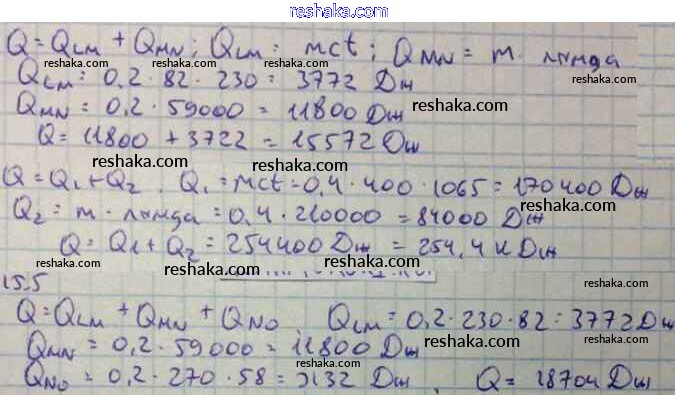 reshaka.com
Q = Q_LM + Q_MN ; Q_LM = mct ; Q_MN = m · лямда
Q_LM = 0,2 · 82 · 230 = 3772 Дж
reshaka.com
reshaka.com
Q_MN = 0,2 · 59000 = 11800 Дж
reshaka.com
Q = 11800 + 3722 = 15572 Дж
reshaka.com
reshaka.com
Q = Q₁ + Q₂ . Q₁ = mct = 0,4 · 400 · 1065 = 170400 Дж
reshaka.com
Q₂ = m · лямда = 0,4 · 210000 = 84000 Дж
reshaka.com
Q = Q₁ + Q₂ = 254400 Дж = 254,4 кДж
reshaka.com
reshaka.com
15.5
reshaka.com
Q = Q_LM + Q_MN + Q_NO Q_LM = 0,2 · 230 · 82 = 3772 Дж
reshaka.com
Q_MN = 0,2 · 59000 = 11800 Дж
reshaka.com
reshaka.com
Q_NO = 0,2 · 270 · 58 = 3132 Дж . Q = 18704 Дж
reshaka.com
reshaka.com